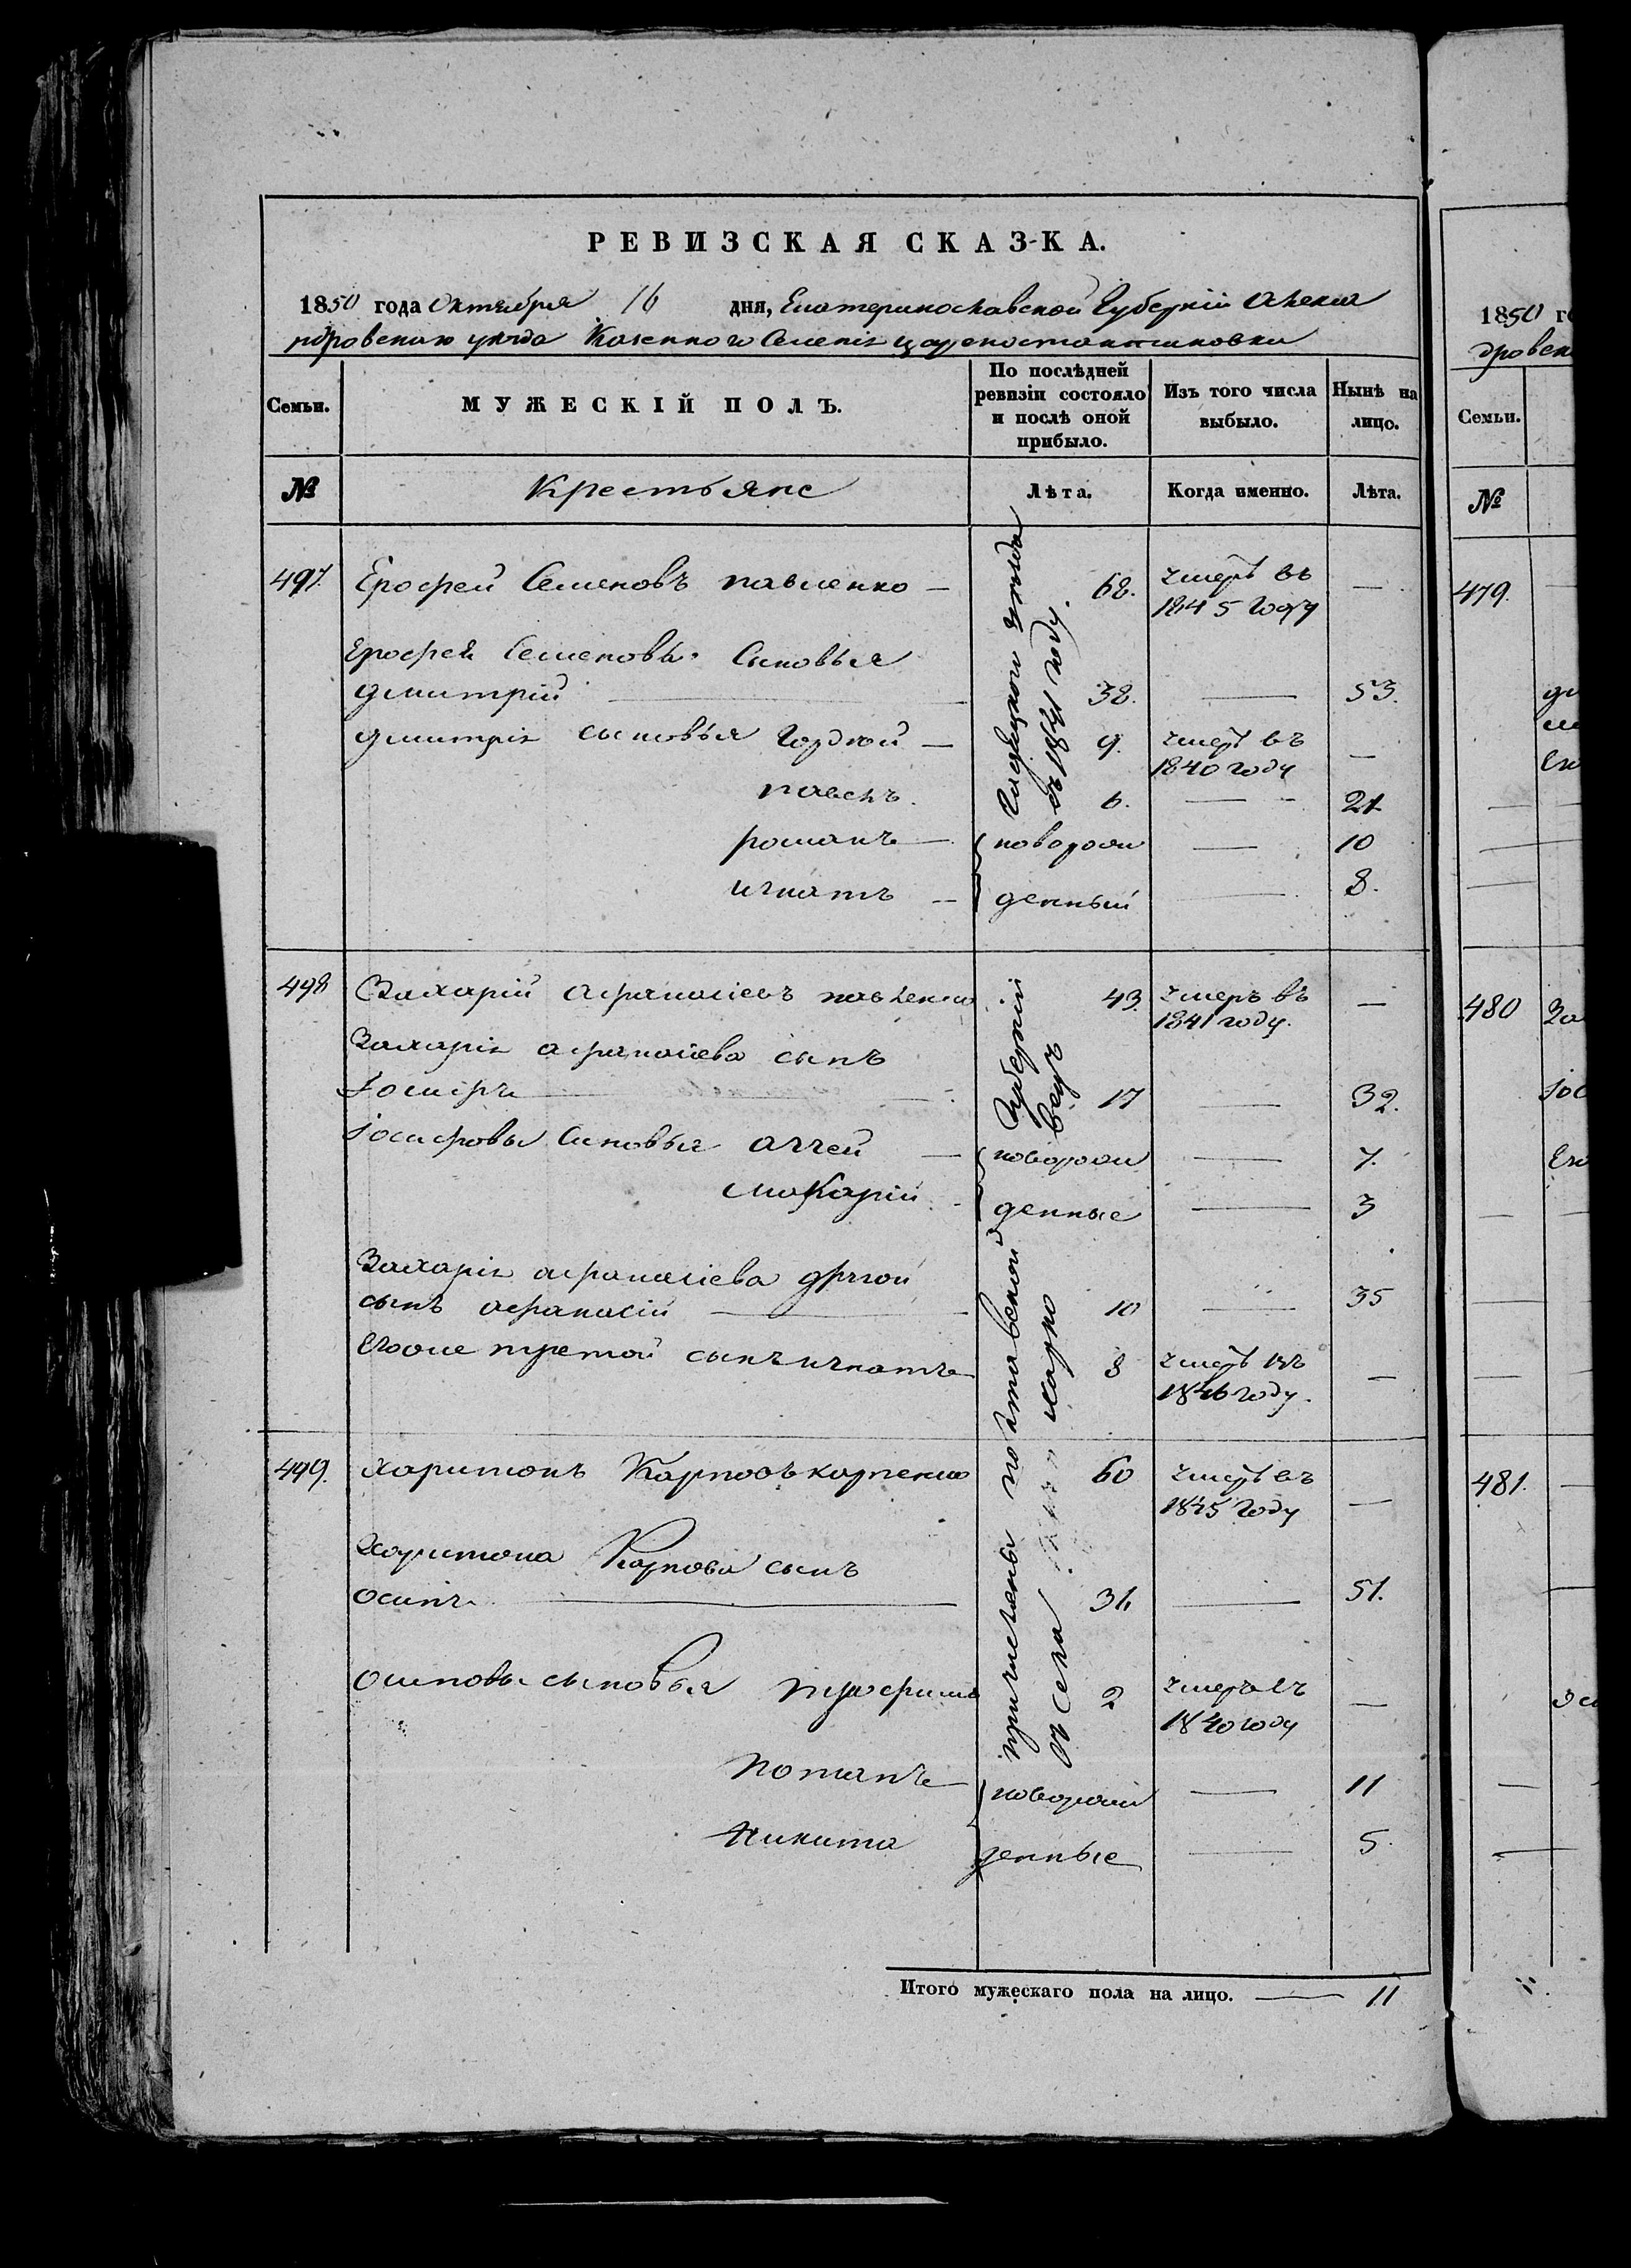 РЕВИЗСКАЯ СКАЗКА.
1850 года Октября 16 дня, Екатеринославской Губерніи Алекса
ндровскаго уезда Казеннаго Селенія Цареконстантиновки
Семьи.
МУЖЕСКІЙ ПОЛЪ.
По послѣдней ревизіи состояло и послѣ оной прибыло.
Изъ того числа выбыло.
Нынѣ на лицо.
№
Крестьяне
Лѣта.
Когда именно.
Лѣта.
причислены Полтавской Губерніи Гадяцкаго уезда
изъ села въ 1841 году.
497. Ерофей Семеновъ павленко — 68. умеръ въ —
1845 году
Ерофея Семенова Сыновья
дмитрій 38. — 53.
дмитрія сыновья Гордей — 9. умеръ въ —
1840 году
павелъ. 6. — 21
романъ — новорож — 10
игнатъ — денный — 8.
498 Захарій афанасіевъ павленко 43. умеръ въ —
1841 году.
Захарія афанасіева сынъ
Іосифъ — 17 — 32.
Іосифовы Сыновья аггей — новорож — 7.
макарій — денные — 3
Захарія афанасіева другой
сынъ афанасій — 10 — 35
Егоже третой сынъ игнатъ — 8 умеръ въ —
1846 году.
499. харитонъ Карповъ карпенко 60 умеръ въ —
1845 году —
Харитона Карпова сынъ
осипъ — 36 — 51.
осиповы сыновья трофимъ 2 умеръ въ
1840 году —
потапъ — новорож — 11
Никита денные — 5.
Итого мужескаго пола на лицо. — 11
1850 го
дровск
Семьи.
№
479.
480 За
481.